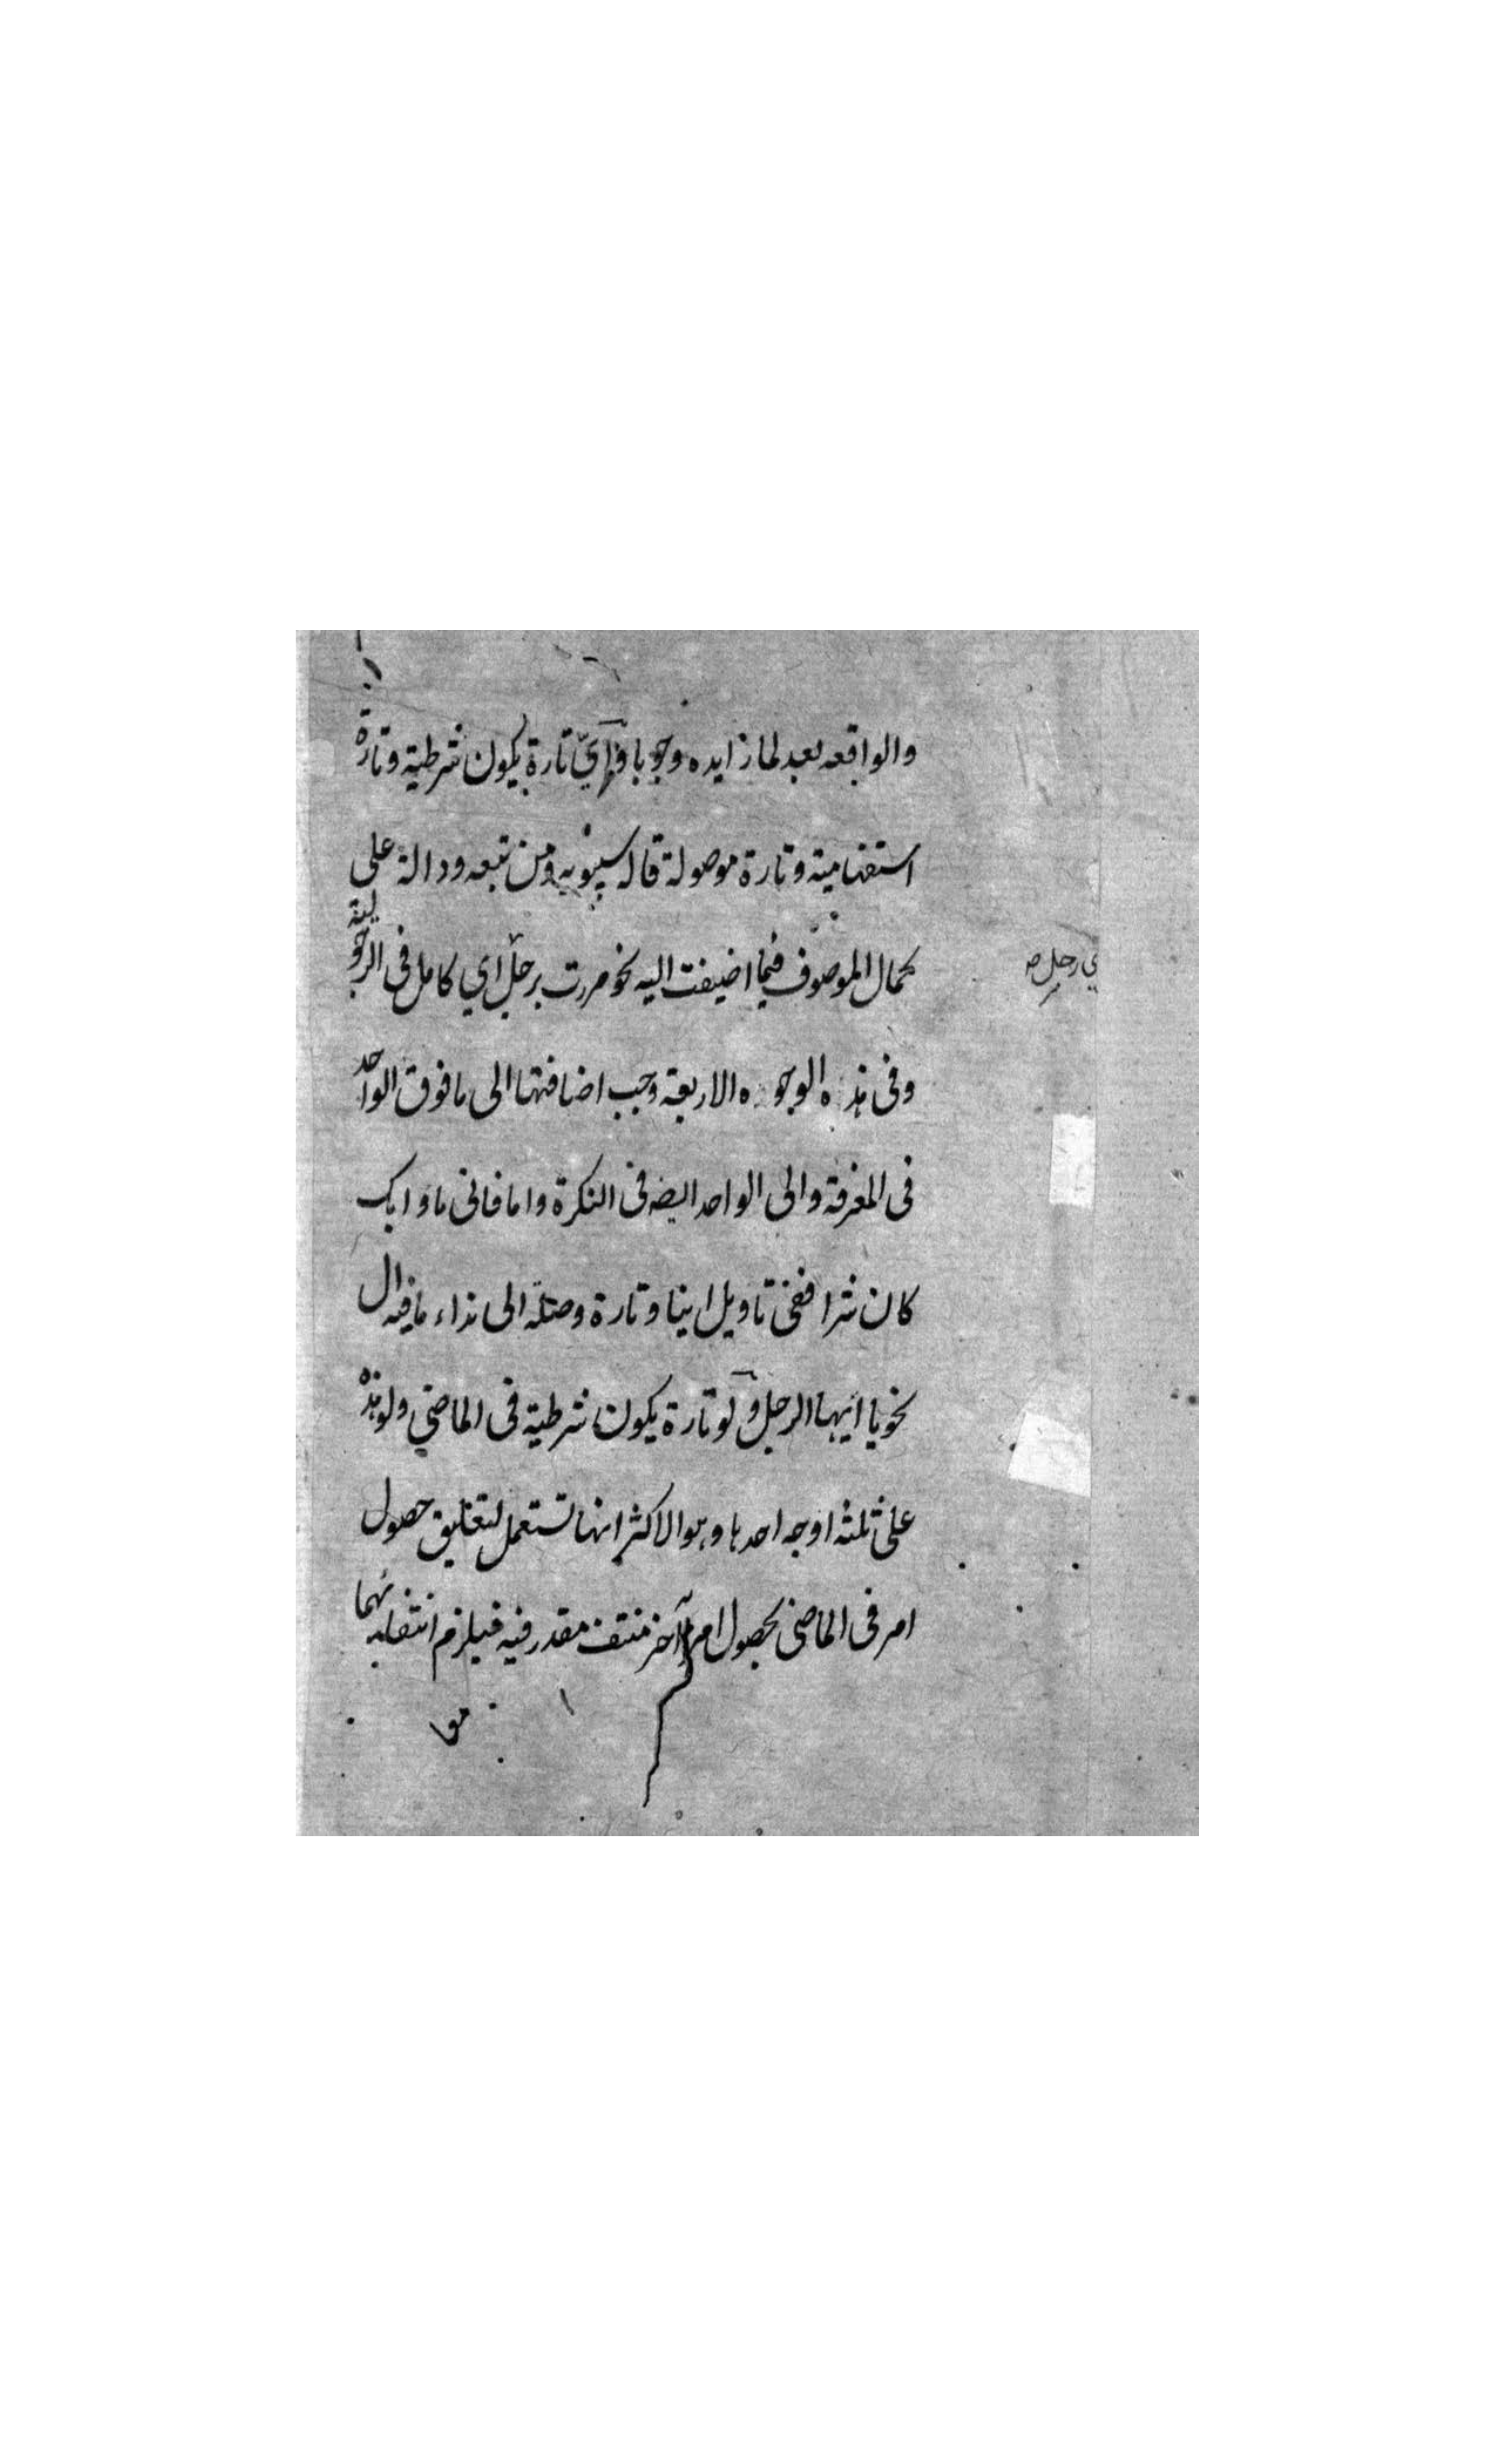 والواقعه بعد لما زايده وجوبا وايّ تارة يكون شرطية وتارة
استفهامية وتارة موصولة قاله سيبويه ومن تبعه ودالة على
كمال الموصوف فيما اضيفت اليه نحو مررت برجل اي كامل فى الرجولية
ي رجل صه
وفى هذه الوجوه الاربعة وجب اضافتها الى ما فوق الواحد
فى المعرفة والى الواحد ايضه فى النكرة واما فانى ما وايك
كان شرا ففى تاويل اينا وتارة وصلة الى نداء ما فيه ال
نحو يا ايها الرجل ولو تارة يكون شرطية فى الماضي ولو هذه
على ثلثه اوجه احدها وهو الاكثر انها تستعمل لتعليق حصول
امر فى الماضى بحصول امر آخر منتف مقدر فيه فيلزم انتفا بهما